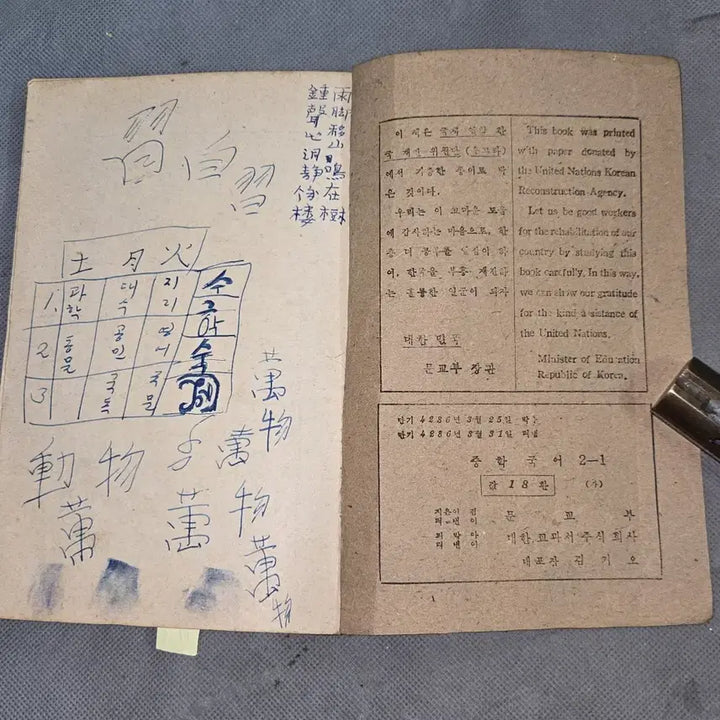 習 白 習
雨脚移山
鳴在樹
鍾聲
靜
樓
土 月 火
1. 과학 대수 지리 수
2 동물 공민 영어
3 국
動物 萬物
萬物
萬 萬物
萬物
이 책은 국제 연합 한
국 재건 위원단 (운크라)
에서 기증한 종이로 박
은 것이다.
우리는 이 고마운 도움
에 감사하는 마음으로, 한
층 더 공부를 열심히 하
여, 한국을 부흥 재건하
는 훌륭한 일군이 되자
대한 민국
문교부 장관
This book was printed
with paper donated by
the United Nations Korean
Reconstruction Agency.
Let us be good workers
for the rehabilitation of our
country by studying this
book carefully. In this way,
we can show our gratitude
for the kind assistance of
the United Nations.
Minister of Education
Republic of Korea.
단기 4286년 3월 25일 박음
단기 4286년 3월 31일 펴냄
중학국어 2—1
값 18 환
지은이 겸 펴낸이 문교부
대한교과서주식회사
대표자 김기오